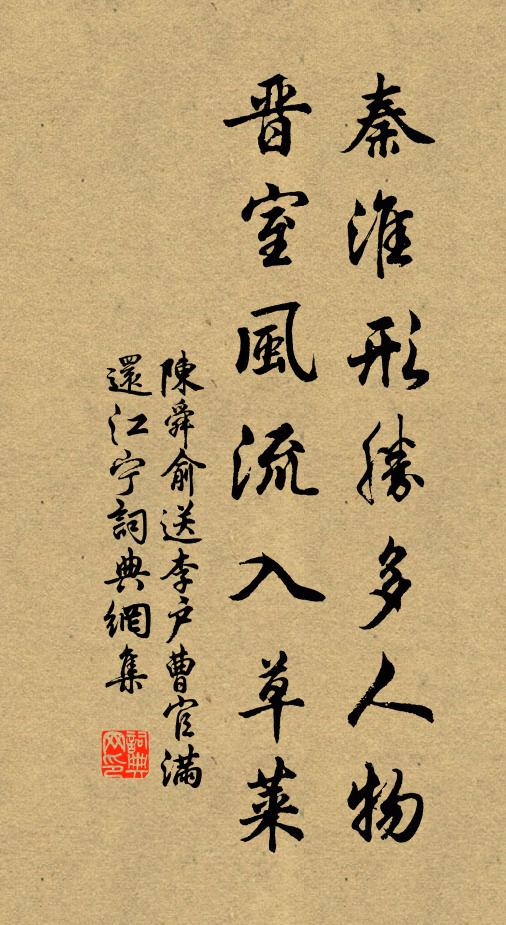 秦淮形勝多人物
晋室風流入草萊
陳舜俞送李户曹官滿
還江宁詞典網集
詞典网印